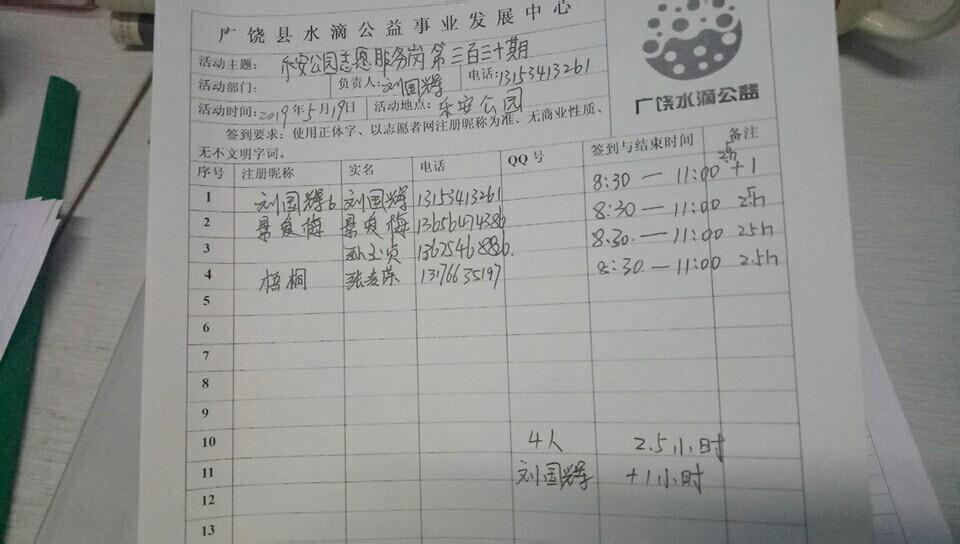 广饶县水滴公益事业发展中心
活动主题: 乐安公园志愿服务岗第三百三十期
活动部门: 负责人: 刘国辉 电话: 13153413261
活动时间: 2019年5月19日 活动地点: 乐安公园
广饶水滴公益
签到要求: 使用正体字、以志愿者网注册昵称为准、无商业性质、
无不文明字词。
序号 注册昵称 实名 电话 QQ号 签到与结束时间 备注
1 刘国辉6 刘国辉 13153413261 8:30—11:00 +1
2 景爱梅 景爱梅 13656474386 8:30—11:00
3 孙玉贞 1362546886 8:30—11:00 2.5h
4 梧桐 13176635197 8:30—11:00 2.5h
5
6
7
8
9
10 4人 2.5小时
11 刘国辉 +1小时
12
13